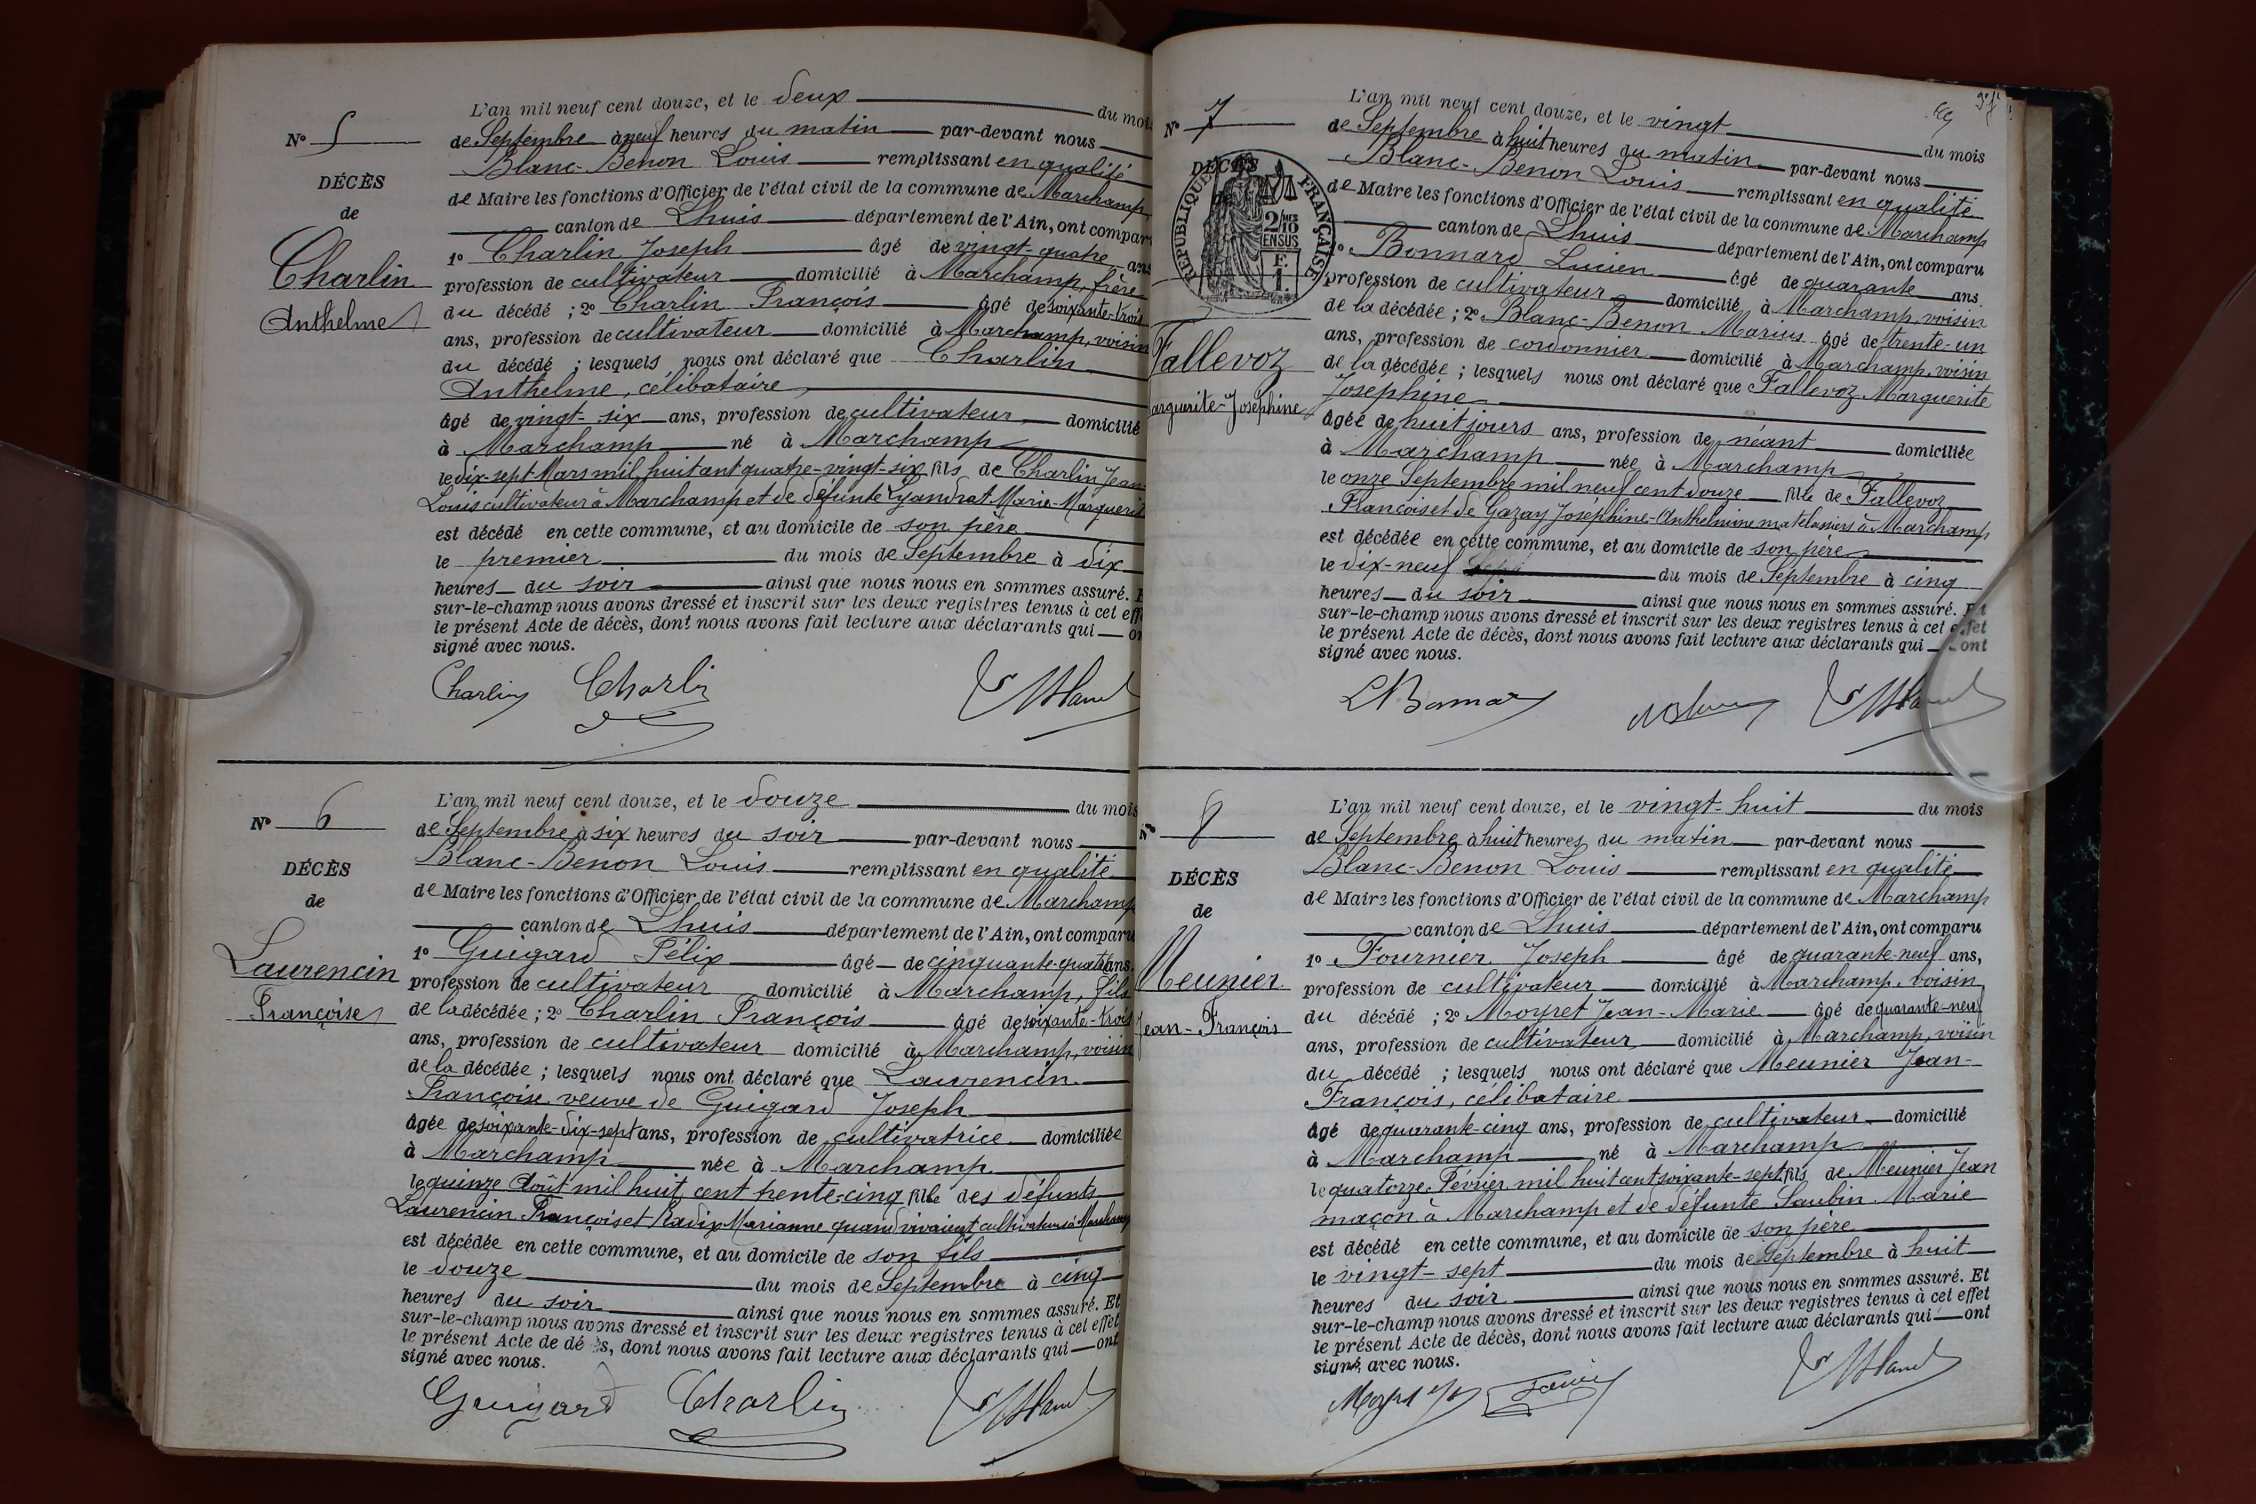 L'an mil neuf cent douze, et le deux du mois
N° 5
de Septembre à neuf heures du matin par-devant nous
Blanc-Benon Louis remplissant en qualité
DÉCÈS
de Maire les fonctions d'Officier de l'état civil de la commune de Marchamp
de
canton de Lhuis département de l'Ain, ont comparu
1° Charlin Joseph âgé de vingt-quatre ans
Charlin
profession de cultivateur domicilié à Marchamp, frère
Anthelme
du décédé ; 2° Charlin François âgé de soixante-trois
ans, profession de cultivateur domicilié à Marchamp, voisin
du décédé ; lesquels nous ont déclaré que Charlin
Anthelme, célibataire
âgé de vingt-six ans, profession de cultivateur domicilié
à Marchamp né à Marchamp
le dix-sept Mars mil huit cent quatre-vingt-six fils de Charlin Jean-
Louis cultivateur à Marchamp et de défunte Marie-Marguerite
est décédé en cette commune, et au domicile de son père
le premier du mois de Septembre à dix
heures du soir ainsi que nous nous en sommes assuré. E
sur-le-champ nous avons dressé et inscrit sur les deux registres tenus à cet eff
le présent Acte de décès, dont nous avons fait lecture aux déclarants qui on
signé avec nous.
Charlin Charlin
N° 6
L'an mil neuf cent douze, et le douze du mois
de Septembre à six heures du soir par-devant nous
Blanc-Benon Louis remplissant en qualité
DÉCÈS
de Maire les fonctions d'Officier de l'état civil de la commune de Marchamp
de
canton de Lhuis département de l'Ain, ont comparu
1° Guigard Félix âgé de cinquante-quatre ans.
Laurencin
profession de cultivateur domicilié à Marchamp, fils
Françoise
de la décédée ; 2° Charlin François âgé de soixante-trois
ans, profession de cultivateur domicilié à Marchamp, voisin
de la décédée ; lesquels nous ont déclaré que Laurencin
Françoise veuve de Guigard Joseph
âgée de soixante-dix-sept ans, profession de cultivatrice domiciliée
à Marchamp née à Marchamp
le quinze Août mil huit cent trente-cinq fille des défunts
Laurencin François et Radix Marianne quand vivaient cultivateurs à Marchamp
est décédée en cette commune, et au domicile de son fils
le douze du mois de Septembre à cinq
heures du soir ainsi que nous nous en sommes assuré. Et
sur-le-champ nous avons dressé et inscrit sur les deux registres tenus à cet effet
le présent Acte de dé s, dont nous avons fait lecture aux déclarants qui ont
signé avec nous.
Guigard Charlin
L'an mil neuf cent douze, et le vingt du mois
N° 7
de Septembre à huit heures du matin par-devant nous
Blanc-Benon Louis remplissant en qualité
DÉCÈS
RÉPUBLIQUE FRANÇAISE
de Maire les fonctions d'Officier de l'état civil de la commune de Marchamp
canton de Lhuis département de l'Ain, ont comparu
1° Bonnard Lucien âgé de quarante ans.
profession de cultivateur domicilié à Marchamp, voisin
de la décédée ; 2° Blanc-Benon Marius âgé de trente-un
ans, profession de cordonnier domicilié à Marchamp, voisin
Fallevoz
de la décédée ; lesquels nous ont déclaré que Fallevoz Marguerite
arguerite-Joséphine
Joséphine
âgée de huit jours ans, profession de néant domiciliée
à Marchamp née à Marchamp
le onze Septembre mil neuf cent douze fille de Fallevoz
François et de Gazay Joséphine-Anthelmine matelassiers à Marchamp
est décédée en cette commune, et au domicile de son père
le dix-neuf du mois de Septembre à cinq
heures du soir ainsi que nous nous en sommes assuré. Et
sur-le-champ nous avons dressé et inscrit sur les deux registres tenus à cet effet
le présent Acte de décès, dont nous avons fait lecture aux déclarants qui ont
signé avec nous.
N° 8
L'an mil neuf cent douze, et le vingt-huit du mois
de Septembre à huit heures du matin par-devant nous
Blanc-Benon Louis remplissant en qualité
DÉCÈS
de Maire les fonctions d'Officier de l'état civil de la commune de Marchamp
de
canton de Lhuis département de l'Ain, ont comparu
1° Fournier Joseph âgé de quarante-neuf ans,
Meunier
profession de cultivateur domicilié à Marchamp, voisin
Jean-François
du décédé ; 2° Moyret Jean-Marie âgé de quarante-neuf
ans, profession de cultivateur domicilié à Marchamp, voisin
du décédé ; lesquels nous ont déclaré que Meunier Jean-
François, célibataire
âgé de quarante-cinq ans, profession de cultivateur domicilié
à Marchamp né à Marchamp
le quatorze Février mil huit cent soixante-sept fils de Meunier Jean
maçon à Marchamp et de défunte Saubin Marie
est décédé en cette commune, et au domicile de son père
le vingt-sept du mois de Septembre à huit
heures du soir ainsi que nous nous en sommes assuré. Et
sur-le-champ nous avons dressé et inscrit sur les deux registres tenus à cet effet
le présent Acte de décès, dont nous avons fait lecture aux déclarants qui ont
signé avec nous.